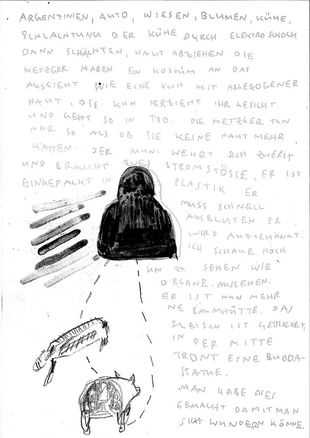 ARGENTINIEN, AUTO, WIESEN, BLUMEN, KÜHE,
SCHLACHTUNG DER KÜHE DURCH ELEKTROSCHOCK
DANN SCHÄCHTEN, HAUT ABZIEHEN DIE
METZGER HABEN EIN KOSTÜM AN DAS
AUSSIEHT WIE EINE KUH MIT ABGEZOGENER
HAUT, DIE KUH VERZIEHT IHR GESICHT
UND GEHT SO IN TOD. DIE METZGER TUN
NUR SO, ALS OB SIE KEINE HAUT MEHR
HÄTTEN. DER MUNI WEHRT SICH ZUERST
UND BRAUCHT ZWEI STROMSTÖSSE, ER IST
EINGEPACKT IN PLASTIK ER
MUSS SCHNELL
AUSBLUTEN ER
WIRD AUFGEHÄNGT.
ICH SCHAUE HOCH
UM ZU SEHEN WIE
ORGANE AUSSEHEN.
ER IST NUN MEHR
NE BAUMHÜTTE. DAS
FLEISCH IST
IN DER MITTE
TRONT EINE BUDDA-
STATUE.
MAN HABE DIES
GEMACHT DAMIT MAN
SICH WUNDERN KÖNNE.